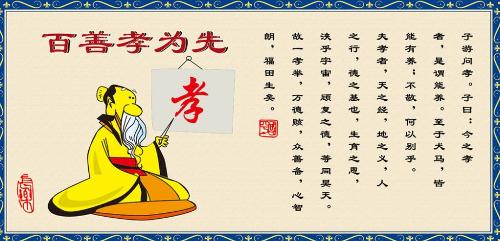 百善孝为先
孝
子游问孝。子曰：今之孝
者，是谓能养。至于犬马，皆
能有养；不敬，何以别乎。
夫孝者，天之经，地之义，人
之行，德之基也，生育之恩，
浃乎宇宙，顾复之德，等同昊天。
故一孝举，万德赅，众善备，心智
朗，福田生矣。